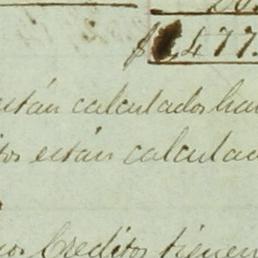 477.
están calculados ha
tos están calcula
Creditos tienen